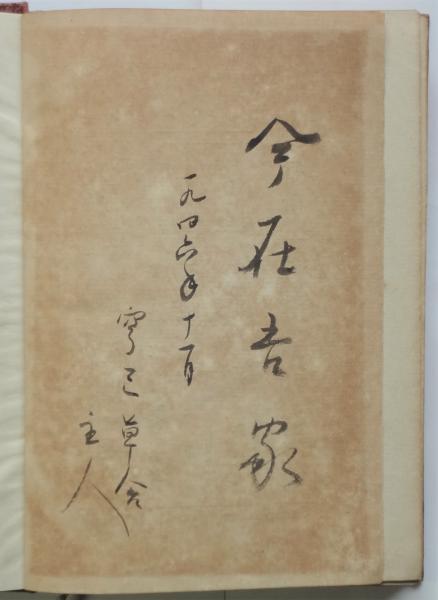 今在吾家
一九四六年十一月
草舍
主人